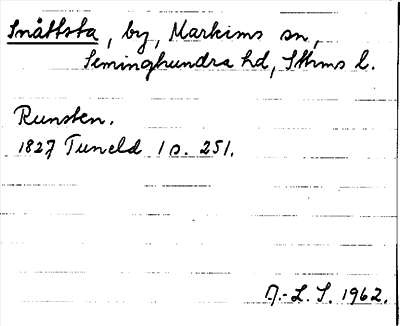 Snåttsta, by, Markims sn,
Seminghundra hd, Sthms l.
Runsten.
1827 Tuneld 1 s. 251.
A.-L. S. 1962.